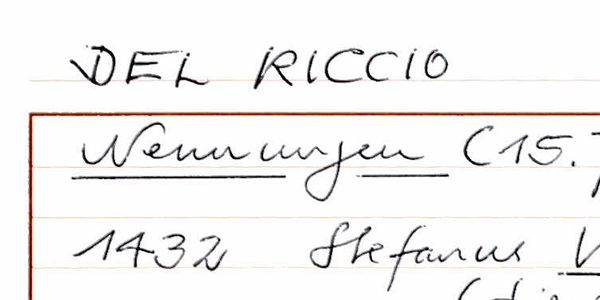 DEL RICCIO
Nennungen (15.
1432 Stefanus